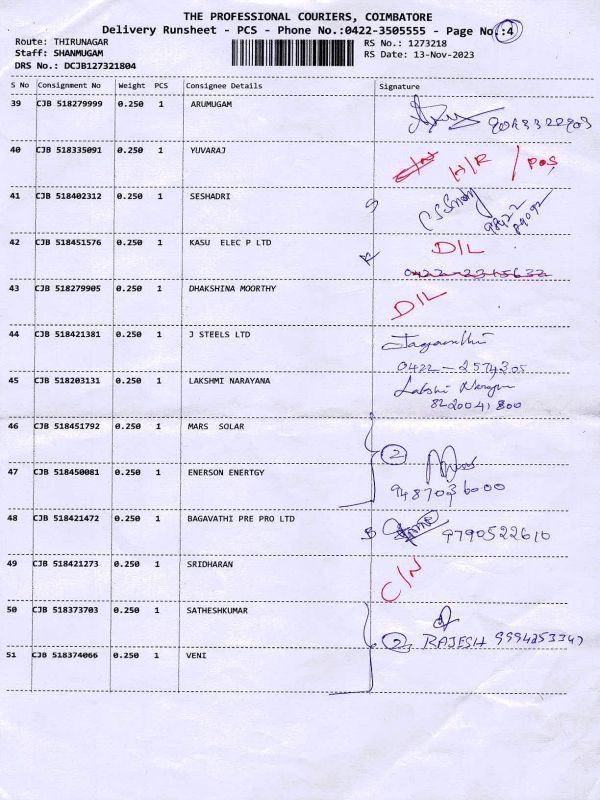 THE PROFESSIONAL COURIERS, COIMBATORE
Delivery Runsheet - PCS - Phone No.:0422-3505555 - Page No.:4
Route: THIRUNAGAR
Staff: SHANMUGAM
DRS No.: DCJB127321804
RS No.: 1273218
RS Date: 13-Nov-2023
S No Consignment No Weight PCS Consignee Details Signature
39 CJB 518279999 0.250 1 ARUMUGAM
40 CJB 518335091 0.250 1 YUVARAJ H/R / POS
41 CJB 518402312 0.250 1 SESHADRI
42 CJB 518451576 0.250 1 KASU ELEC P LTD D/L
0422-2315632
43 CJB 518279905 0.250 1 DHAKSHINA MOORTHY D/L
44 CJB 518421381 0.250 1 J STEELS LTD
0422-2574305
45 CJB 518203131 0.250 1 LAKSHMI NARAYANA
8220041800
46 CJB 518451792 0.250 1 MARS SOLAR 2
47 CJB 518450081 0.250 1 ENERSON ENERTGY
9487036000
48 CJB 518421472 0.250 1 BAGAVATHI PRE PRO LTD B 9790522610
49 CJB 518421273 0.250 1 SRIDHARAN C/N
50 CJB 518373703 0.250 1 SATHESHKUMAR 2 RAJESH 9994253347
51 CJB 518374066 0.250 1 VENI